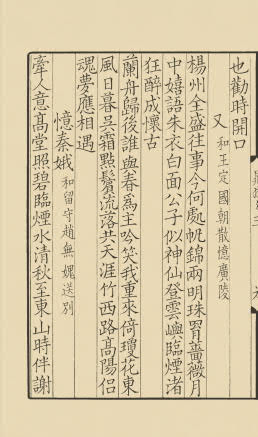 也勸時開口
又 和王定國朝散憶廣陵
楊州全盛往事今何處帆錦兩明珠罥薔薇月
中嬉語朱衣白面公子似神仙登雲嶼臨煙渚
狂醉成懷古
蘭舟歸後誰與春爲主吟笑我重來倚瓊花東
風日暮吴霜點鬢流落共天涯竹西路高陽侣
魂夢應相遇
憶秦娥 和留守趙無媿送别
牽人意髙堂照碧臨煙水清秋至東山時伴謝